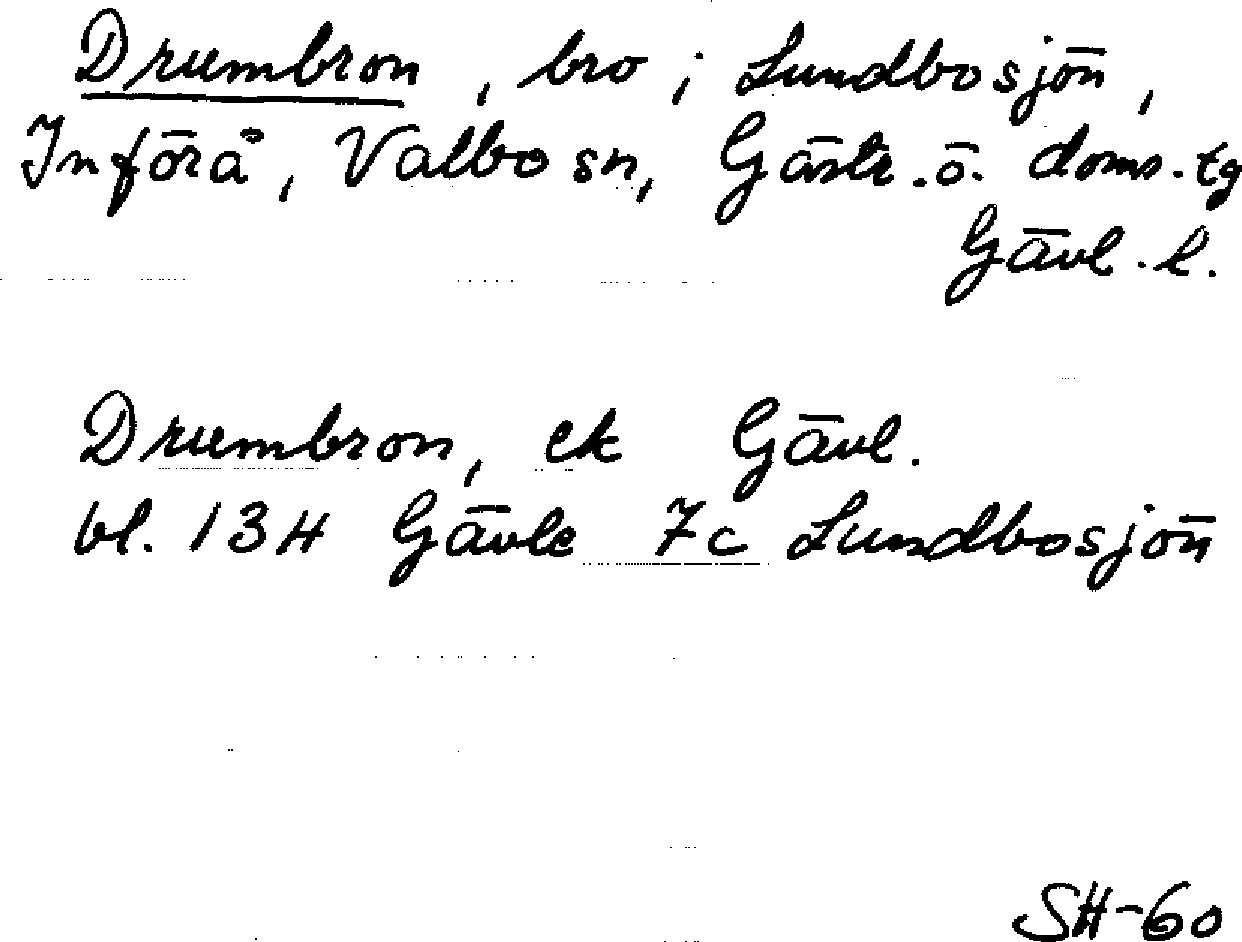 Drumbron, bro i Lundbosjön,
Införå, Valbo sn, Gästr. ö. doms. tg
Gävl. l.
Drumbron, ek Gävl.
bl. 13H Gävle 7c Lundbosjön
SH-60